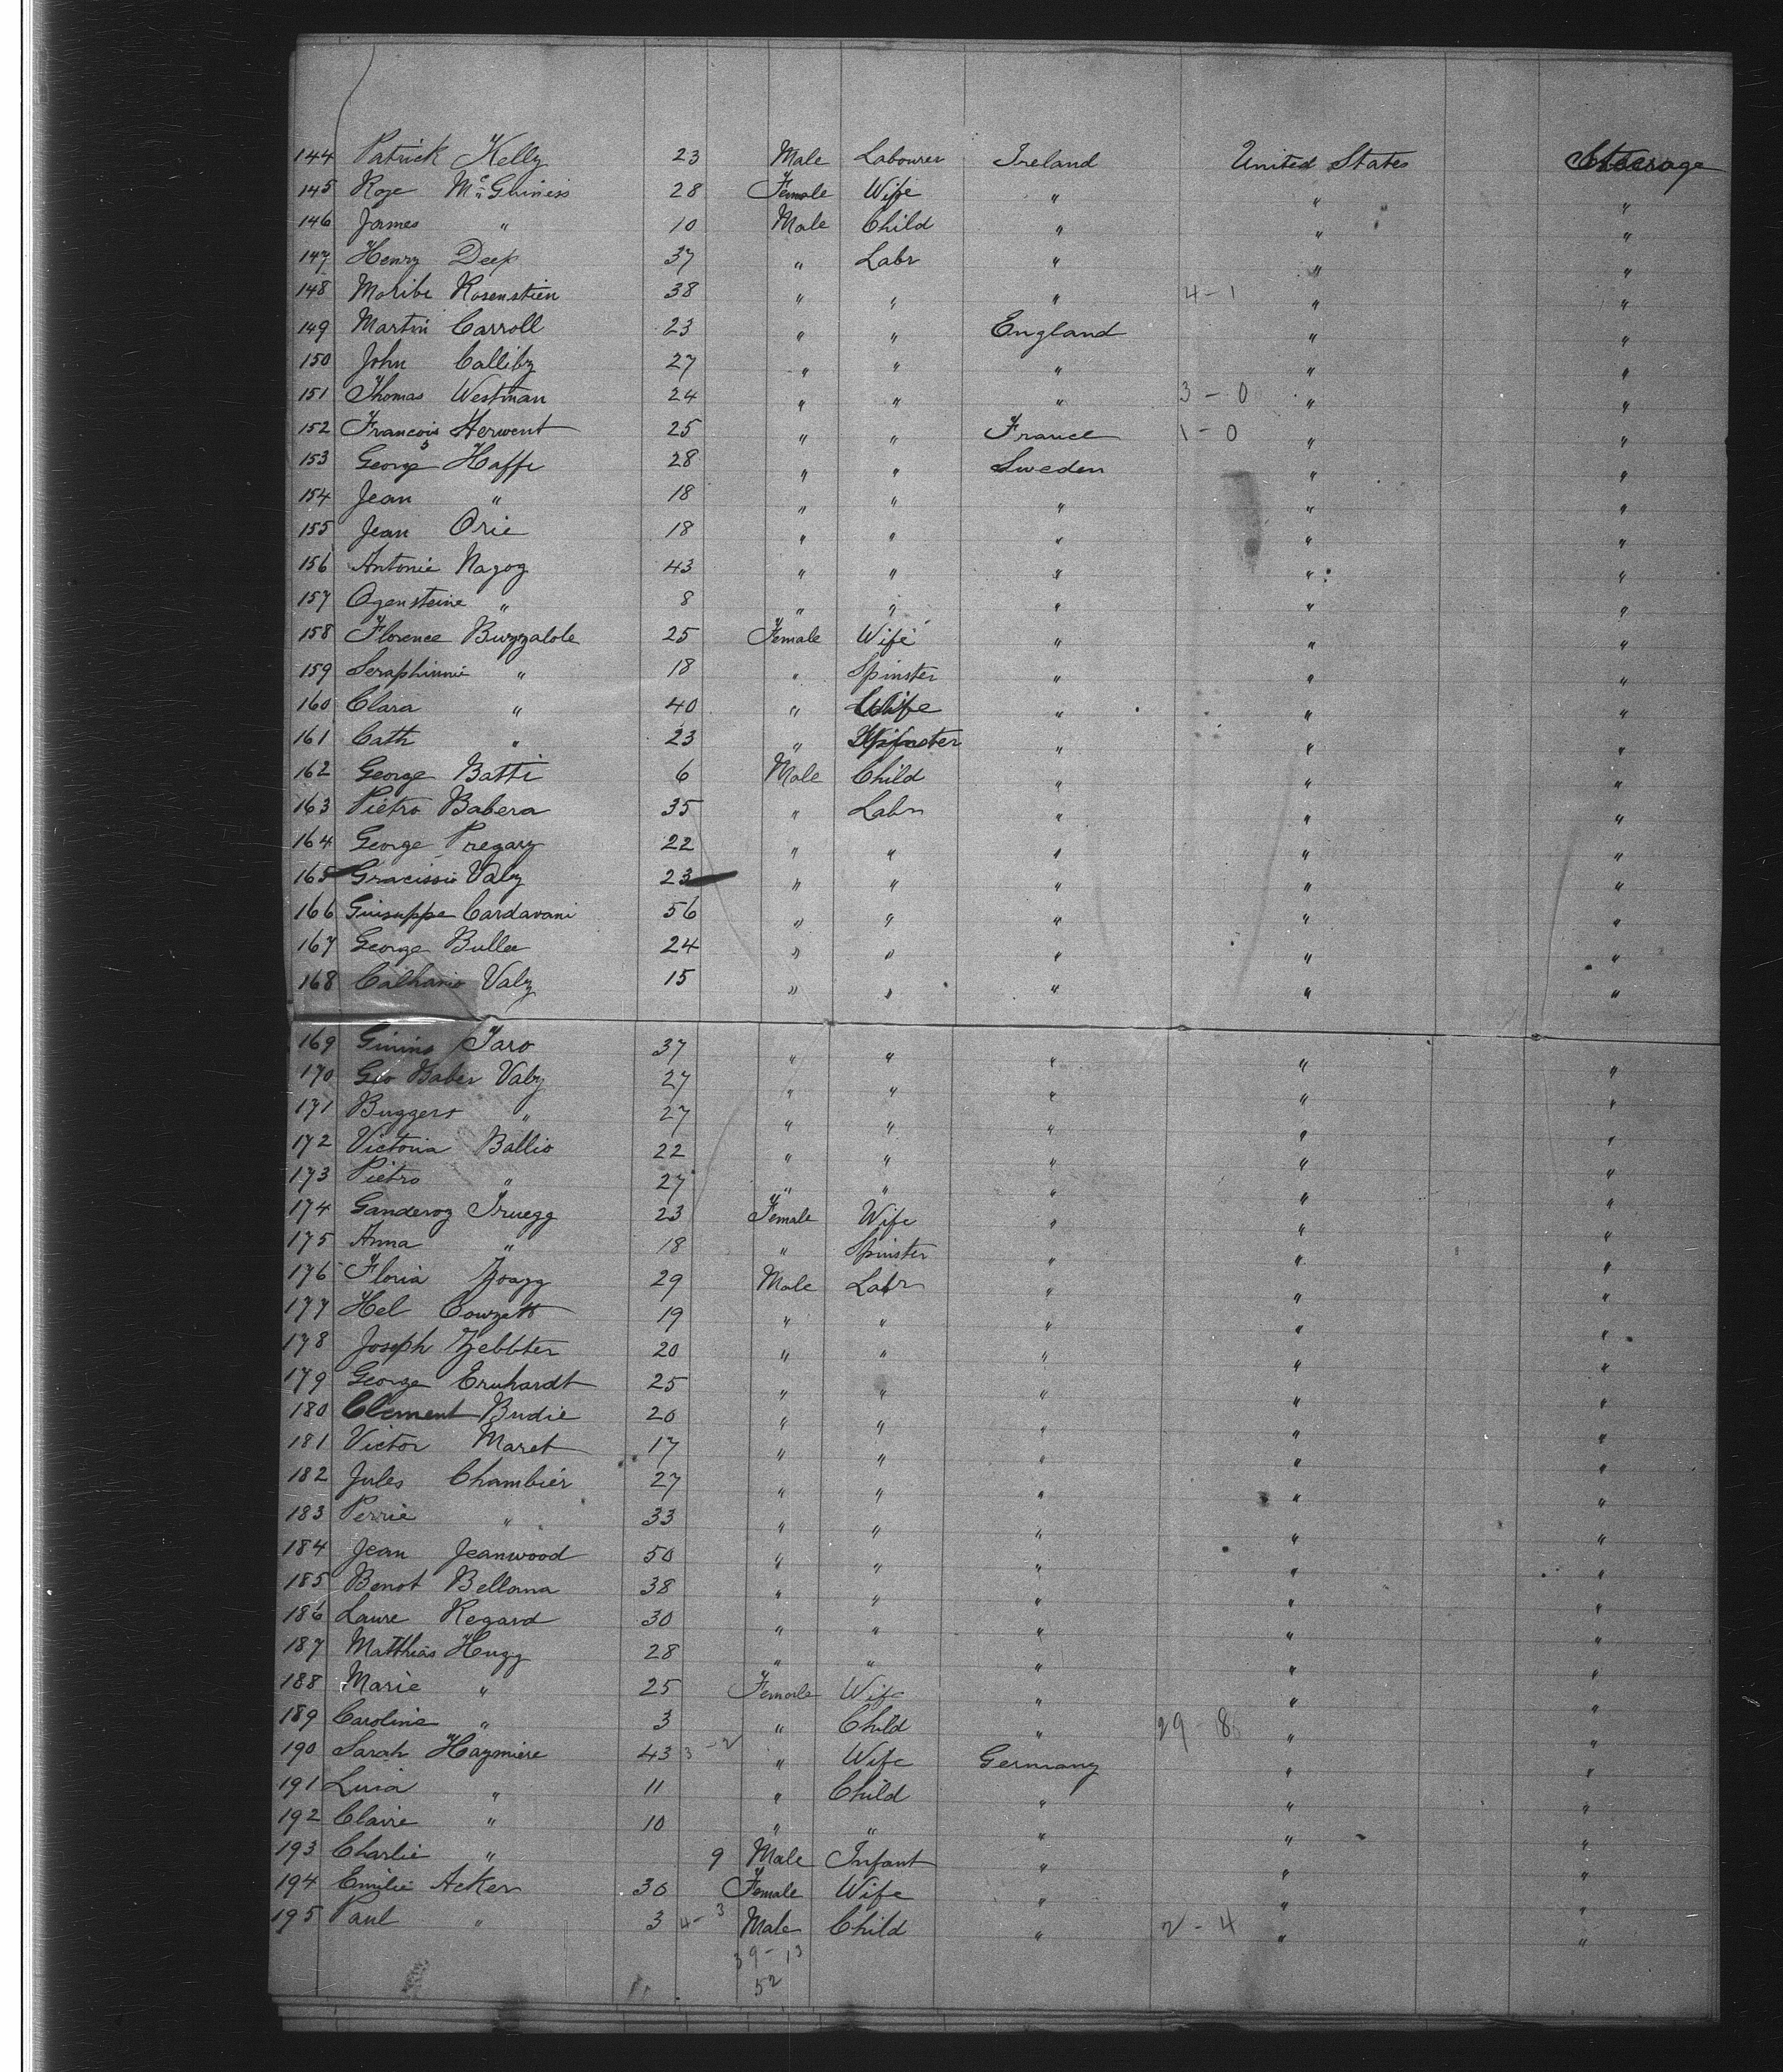 144 Patrick Kelly 23 Male Labourer Ireland United States Steerage
145 Rose McGuiness 28 Female Wife " " "
146 James " 10 Male Child " " "
147 Henry Deep 37 " Labr " " "
148 Moribe Rosenstien 38 " " " 4-1 " "
149 Martin Carroll 23 " " England " "
150 John Calliby 27 " " " " "
151 Thomas Westman 24 " " " 3-0 " "
152 Francois Herwent 25 " " France 1-0 " "
153 George Haffe 28 " " Sweden " "
154 Jean " 18 " " " " "
155 Jean Orie 18 " " " " "
156 Antonie Nagog 43 " " " " "
157 Ogensteine " 8 " " " " "
158 Florence Buzzalole 25 Female Wife " " "
159 Seraphinnie " 18 " Spinster " " "
160 Clara " 40 " Wife " " "
161 Cath " 23 " Spinster " " "
162 George Batti 6 Male Child " " "
163 Pietro Babera 35 " Labr " " "
164 George Pregary 22 " " " " "
165 Gracissio Valy 23 " " " " "
166 Guisuppe Cardavani 56 " " " " "
167 George Bulla 24 " " " " "
168 Calhario Valy 15 " " " " "
169 Ginino Taro 37 " " " " "
170 Geo Baber Valy 27 " " " " "
171 Buggero " 27 " " " " "
172 Victoria Ballio 22 " " " " "
173 Pietro " 27 " " " " "
174 Ganderoz Truegg 23 Female Wife " " "
175 Anna " 18 " Spinster " " "
176 Floria Zoagg 29 Male Labr " " "
177 Hel Cowzett 19 " " " " "
178 Joseph Zebbter 20 " " " " "
179 George Eruhardt 25 " " " " "
180 Clement Budie 20 " " " " "
181 Victor Maret 17 " " " " "
182 Jules Chambier 27 " " " " "
183 Perrie " 33 " " " " "
184 Jean Jeanwood 50 " " " " "
185 Benot Bellama 38 " " " " "
186 Laure Regard 30 " " " " "
187 Matthias Hugg 28 " " " " "
188 Marie " 25 Female Wife " " "
189 Caroline " 3 " Child " 29-8 " "
190 Sarah Haymiere 43 3-2 " Wife Germany " "
191 Luia " 11 " Child " " "
192 Claire " 10 " " " " "
193 Charlie " 9 Male Infant " " "
194 Emilie Acker 30 Female Wife " " "
195 Paul " 3 4-3 Male Child " 2-4 " "
39-13
52